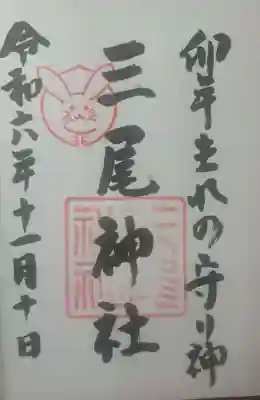 卯年生れの守り神
三尾神社
令和六年十一月十日